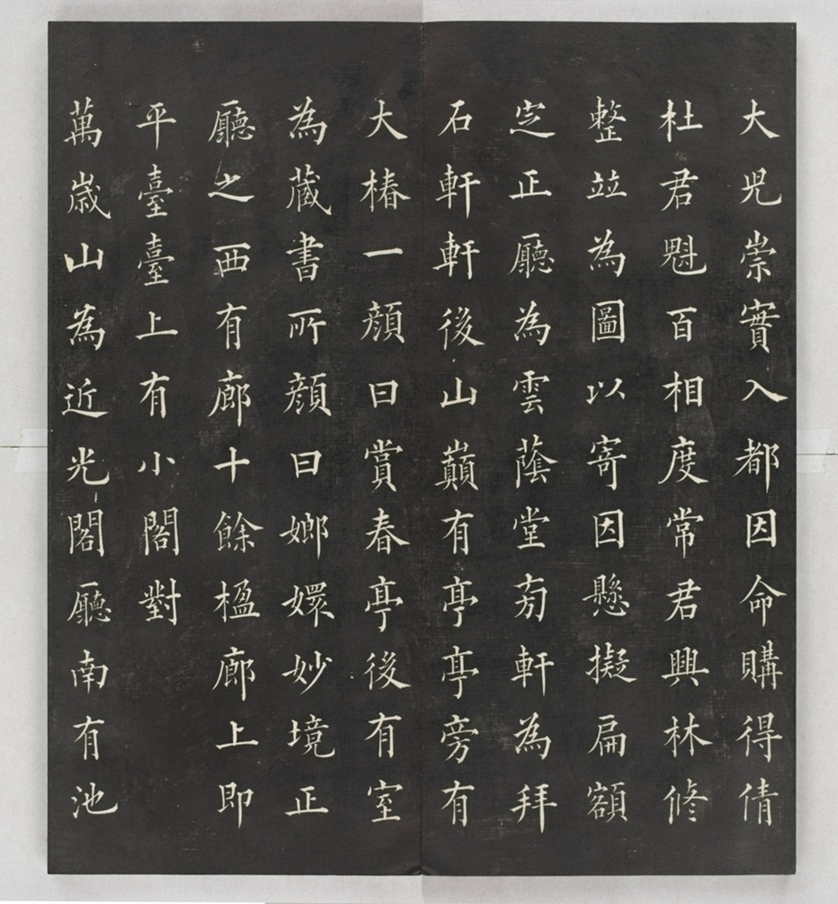 大兕崇實入都因命購得倩
杜君魁百相度常君興林修
整竝為圖以寄因懸擬扁額
㝎正廳為雲蔭堂旁軒為拜
石軒軒後山巔有亭亭旁有
大椿一顏曰賞春亭後有室
為蔵書所顏曰嫏嬛妙境正
廳之西有廊十餘楹廊上即
平臺臺上有小閣對
萬歲山為近光閣廳南有池